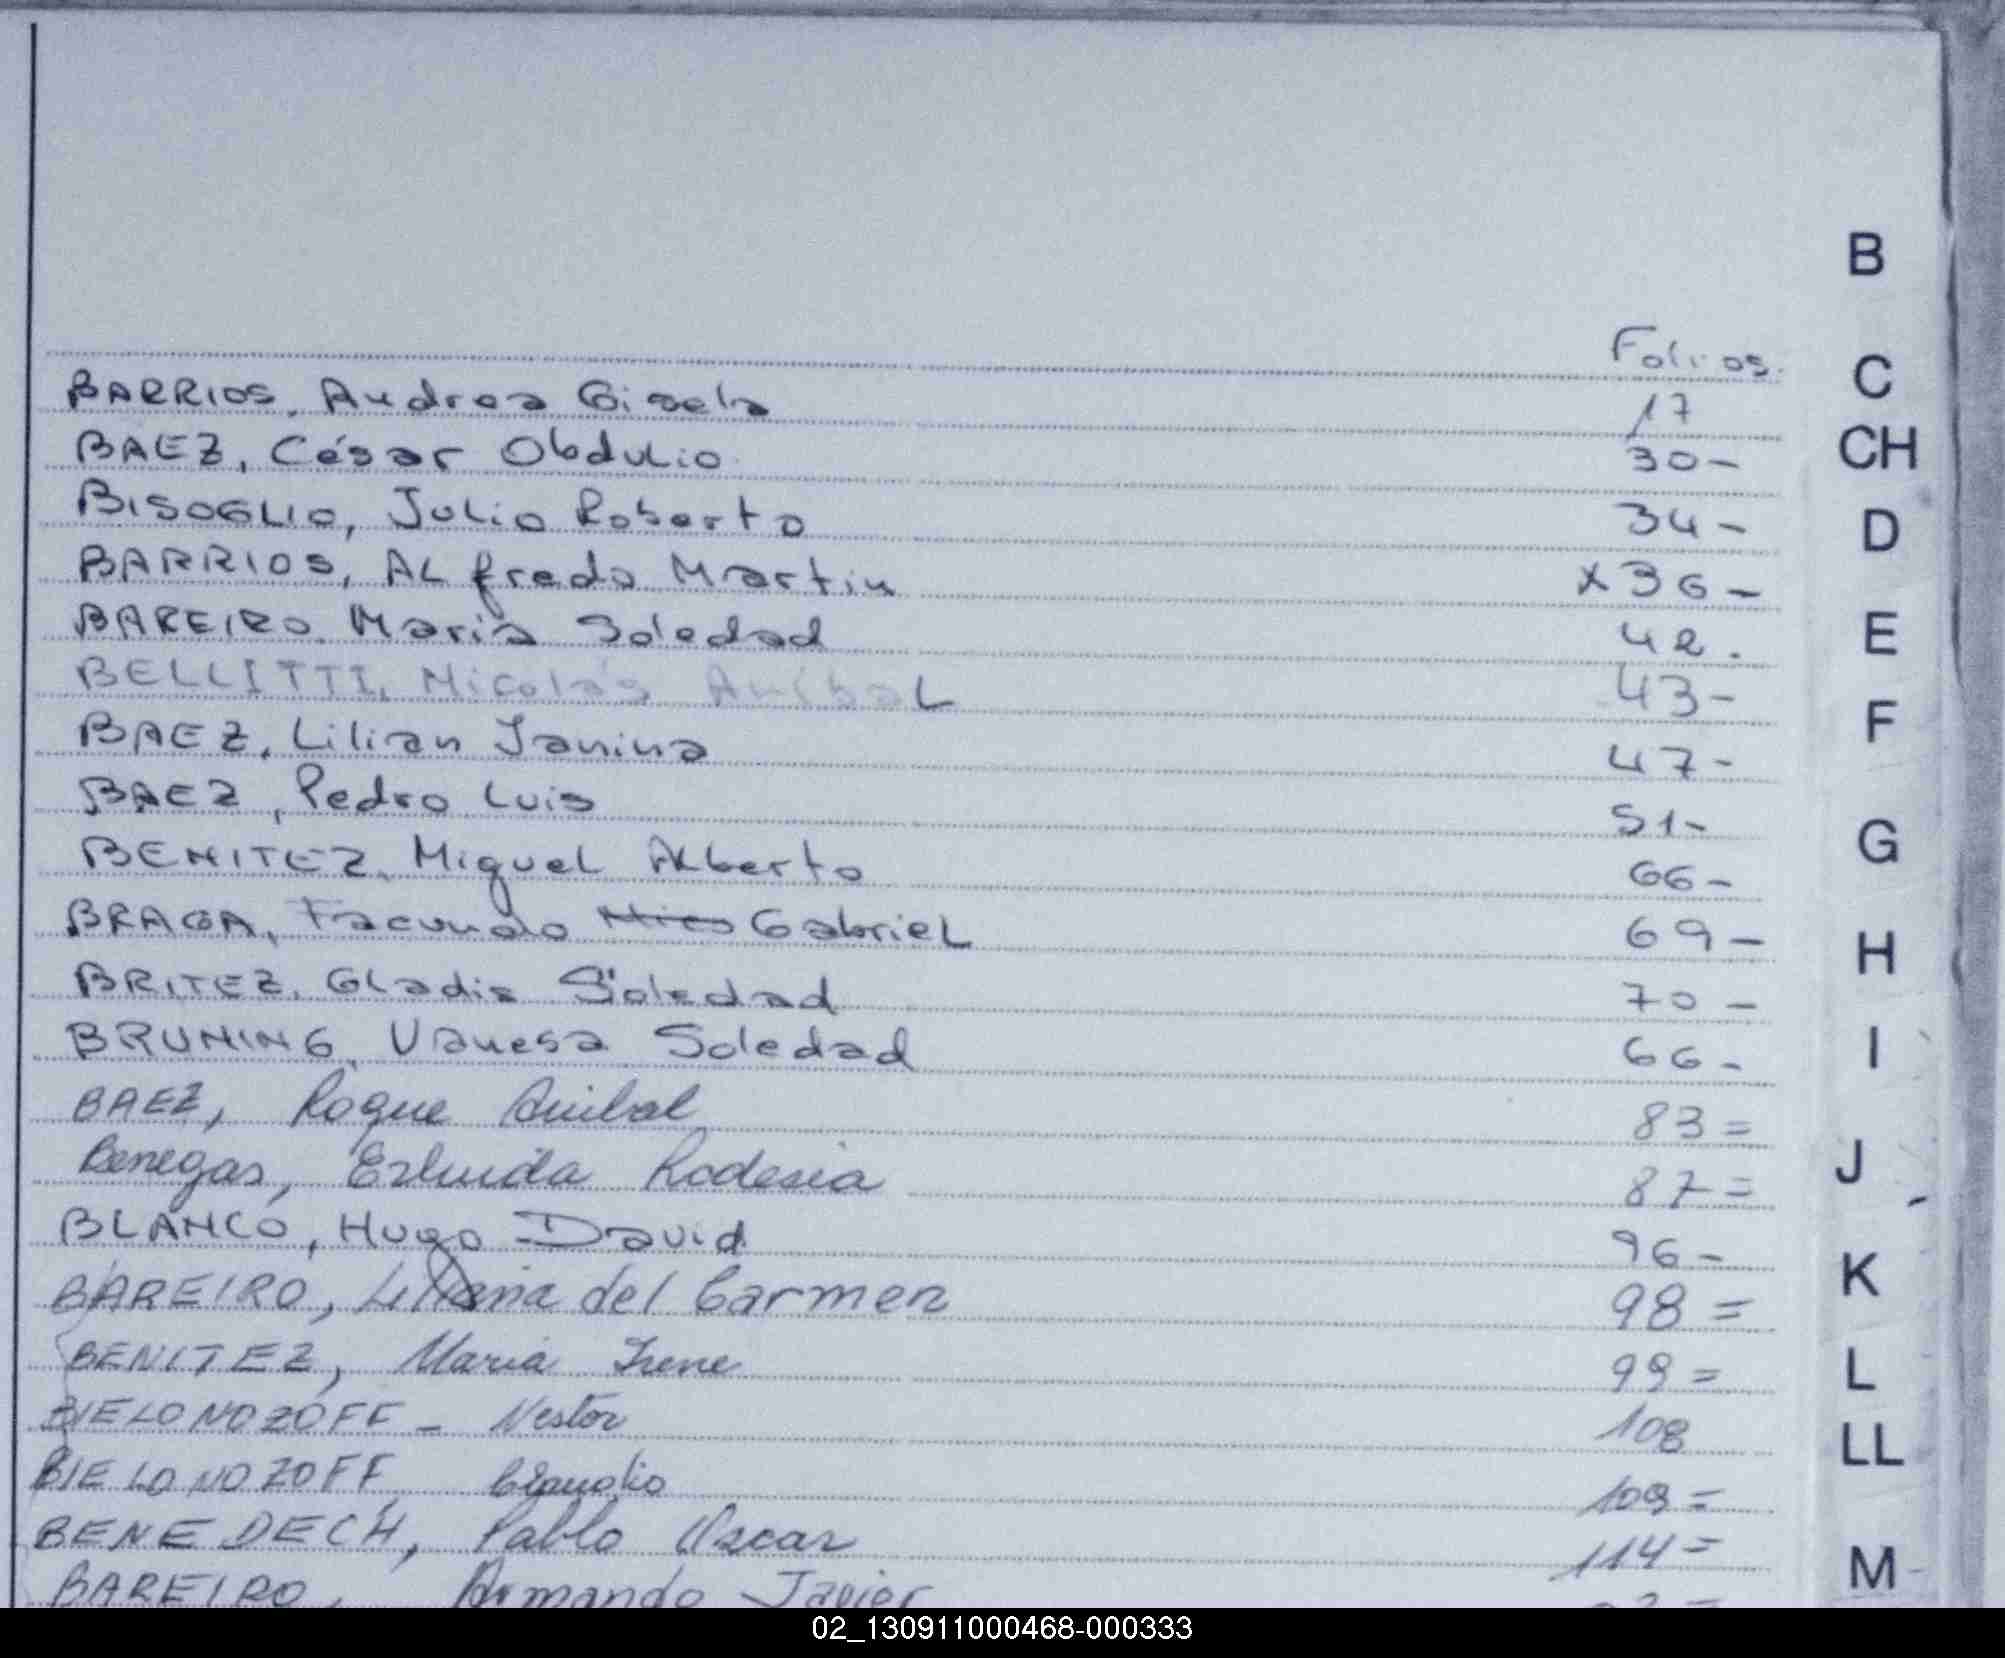 B
Folios.
C
BARRIOS, Andrea Gisela 17
BAEZ, César Obdulio 30-
CH
BISOGLIO, Julio Roberto 34-
D
BARRIOS, ALfredo Martin x36-
BAREIRO María Soledad 42.
E
BELLITTI, Nicolás AníbaL 43-
F
BAEZ, Lilian Janina 47-
BAEZ, Pedro Luis 51-
G
BENITEZ, Miguel ALberto 66-
BRAGA, Facundo Gabriel 69-
H
BRITEZ, Gladis Soledad 70-
BRUNING, Vanesa Soledad 66-
I
BAEZ, Roque Anibal 83=
Benegas, Rodesia 87=
J
BLANCO, Hugo David 96-
K
BAREIRO, Liliana del Carmen 98=
BENITEZ, Maria Irene 99=
L
BIELONOZOFF - Nestor 108
LL
BIELONOZOFF, Claudio 109=
BENEDECH, Pablo Oscar 114=
M
BAREIRO, Armando Javier
02_130911000468-000333